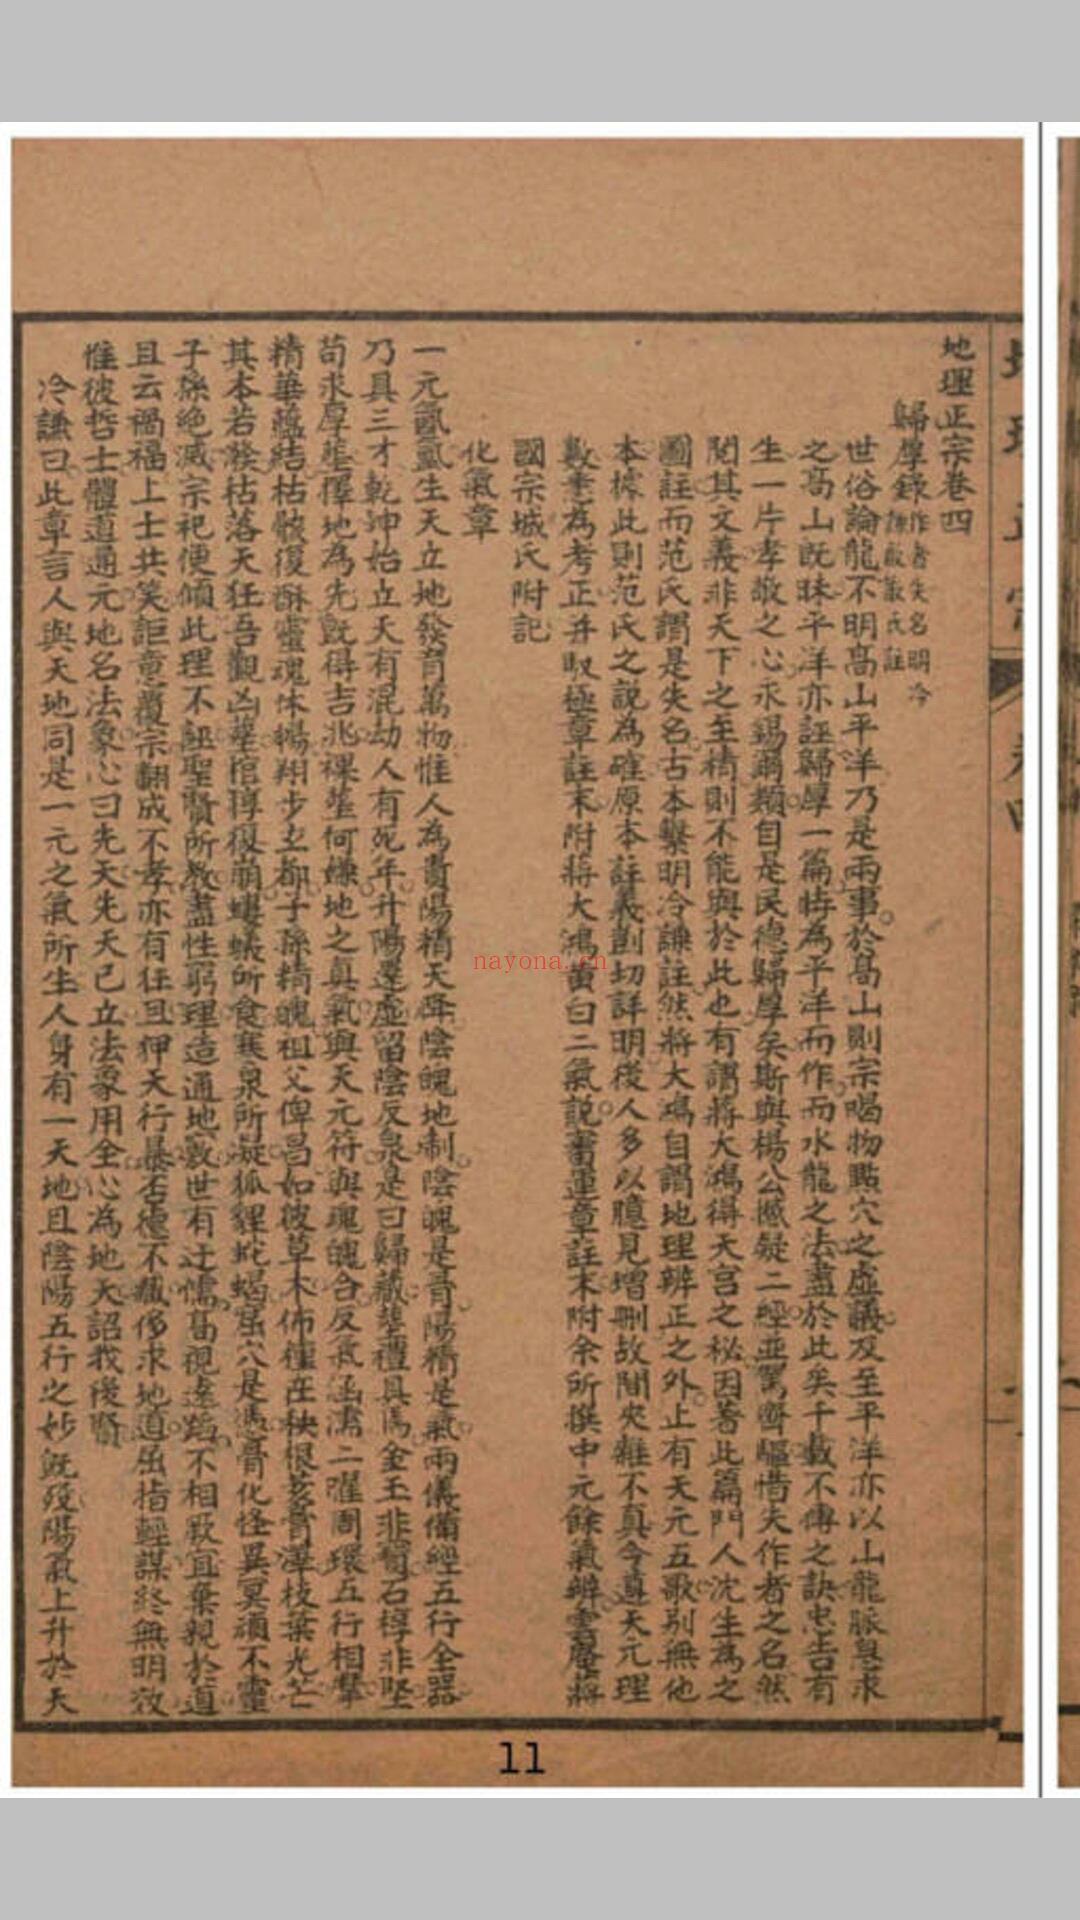 地理正宗卷四
歸厚錄 作者失名明冷
謙啟敬氏註
世俗論龍不明高山平洋乃是兩事於高山則宗喝物點穴之虛議及至平洋亦以山龍脈息求
之高山既昧平洋亦誣歸厚一篇特為平洋而作而水龍之法盡於此矣千載不傳之訣忠告有
生一片孝敬之心永錫爾類自是民德歸厚矣斯與楊公撼疑二經並駕齊驅惜失作者之名然
閱其文義非天下之至精則不能與於此也有謂蔣大鴻得天宮之秘因著此篇門人沈生為之
圖註而范氏謂是失名古本繫明冷謙註然蔣大鴻自謂地理辨正之外止有天元五歌別無他
本據此則范氏之說為確原本註義剴切詳明後人多以臆見增刪故間夾雜不真今遵天元理
數業為考正并馭極章註末附蔣大鴻黃白二氣說蓄運章註末附余所撰中元餘氣辨雲麈蔣
國宗城氏附記
化氣章
一元氤氳生天立地發育萬物惟人為貴陽精天降陰魄地制陰魄是膏陽精是氣兩儀備經五行全器
乃具三才乾坤始立天有混劫人有死年升陽還虛留陰反泉是曰歸藏塟禮具焉金玉非寶石椁非堅
苟求厚塟擇地為先既得吉兆裸塟何嫌地之真氣與天元符與魂魄合反氣涵濡二曜周環五行相摩
精華蘊結枯骸復酥靈魂休暢翔步玄都子孫精魄祖父俾昌如彼草木佈種在秧根荄膏澤枝葉光芒
其本若發枯落夭狂吾觀凶塟棺椁復崩螻蟻所食寒泉所凝狐貍蛇蝎窟穴是憑膏化怪異冥頑不靈
子孫絕滅宗祀便傾此理不誣聖賢所教盡性窮理造通地竅世有迂儒高視遠蹈不相厥宜棄親於道
且云禍福上士共笑詎意覆宗翻成不孝亦有狂且狎天行暴否德不臧侈求地道屈指輕謀終無明效
惟彼哲士體道通元地名法象心曰先天先天已立法象用全心為地天詔我後賢
冷謙曰此章言人與天地同是一元之氣所生人身有一天地且陰陽五行之妙既歿陽氣上升於天
11
nayona.cn